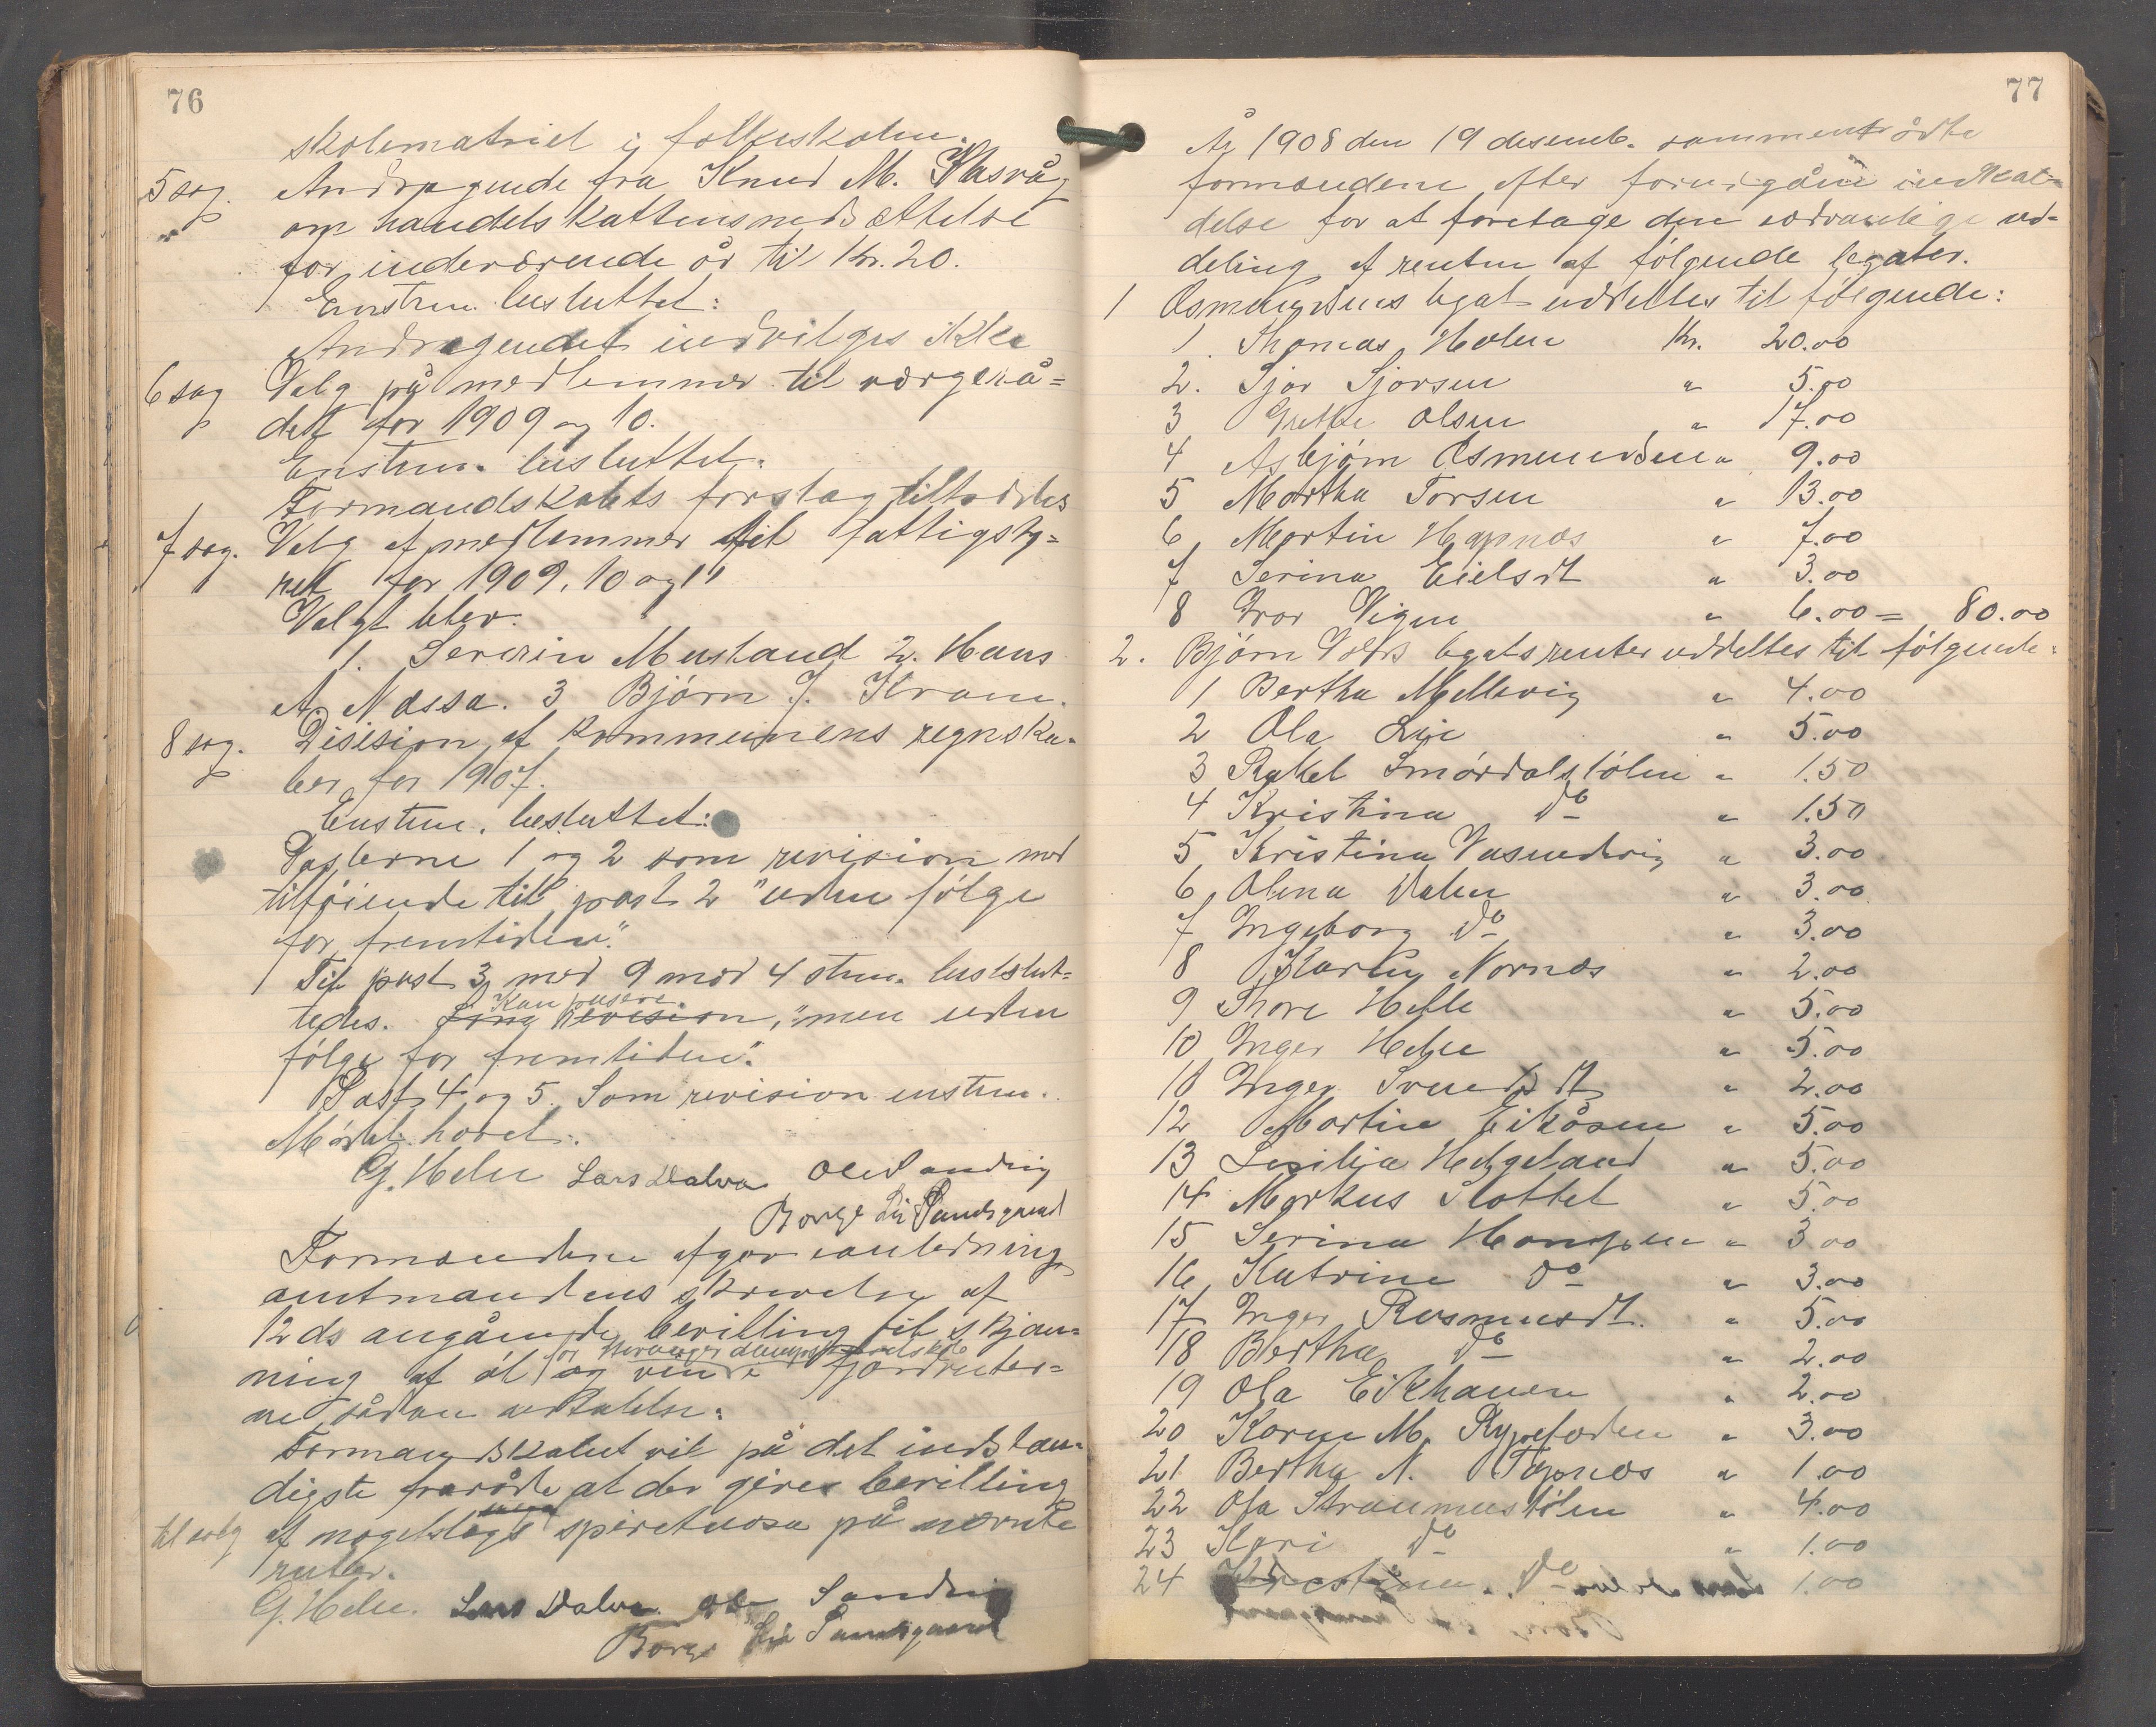 76
skolematriel i folkeskolen.
5 sag. Andragende fra Knud M.
om handelsskattens nedsættelse
for indeværende år til Kr. 20.
Enstem. besluttet:
Andragendet indvilges ikke
6 sag Valg på medlemmer til værgerå=
det for 1909 og 10.
Enstem. besluttet.
Formandskabets forslag tiltrædes
7 sag. Valg af medlemmer til fattigsty=
ret for 1909, 10 og 11
Valgt blev.
1. Severin Musland 2. Hans
A. Næssa. 3 Bjørn J. Kram.
8 sag. Desision af kommunens regnska=
ber for 1907.
Enstem. besluttet:
Posterne 1 og 2 som revision med
tilføiende til post 2 "uden følge
for fremtiden".
Til post 3 med 9 mod 4 stem. beslut=
Kan pasere
tedes. Som revision, "men uden
følge for fremtiden".
Post 4 og 5. Som revision enstem.
Mødet hævet.
G. Helle Lars Dalva Ole Sandvig
Borge Li Sandsgaard
Formændene afgav i anledning
amtmandens skrivelse af
12 ds angående bevilling til skjæn=
for Stavanger dampskibsselskab
ning af øl og vin i fjordruter=
ne sådan udtalelse:
Formandskabet vil på det indstæn=
digste fraråde at der gives bevilling
til salg af nogetslags spirituosa på nævnte
ruter.
G. Helle. Lars Dalva Ole Sandvig
Borge Li Sandsgaard
77
År 1908 den 19 desemb. sammentrådte
formændene efter forudgåen indkal=
delse for at foretage den sedvanlige ud=
deling af renten af følgende legater.
1 Osmundsens legat uddeltes til følgende:
1. Thomas Helen Kr. 20.00
2. Sjor Sjorsen " 5.00
3 Grethe Olsen " 17.00
4 Asbjørn Osmundsen " 9.00
5 Martha Torsen " 13.00
6 Martin Hapnes " 7.00
7 Serina Eielsdt " 3.00
8 Ivar Vigen " 6.00 = 80.00
2. Bjørn legats renter uddeltes til følgende:
1 Bertha Mellevig " 4.00
2 Ola Lie " 5.00
3 Rakel Smørdalstølen " 1.50
4 Kristina do " 1.50
5 Kristina Vasendvig " 3.00
6 Olena Dalen " 3.00
7 Ingeborg do " 3.00
8 Nornes " 2.00
9 Thore Helle " 5.00
10 Inger Helle " 5.00
10 Inger Svendsdt " 2.00
12 Martin Eikåsen " 5.00
13 Sesilia Helgeland " 5.00
14 Markus Slottet " 5.00
15 Serina " 3 00
16 Katrine do " 3.00
17 Inger Rasmusdt. " 5.00
18 Bertha do " 2.00
19 Ola Eikhauen " 2.00
20 Karen M. " 3.00
21 Bertha N. Tøpnes " 1.00
22 Ola Straumstølen " 4.00
23 Kari do " 1.00
24 Kristina do 1.00